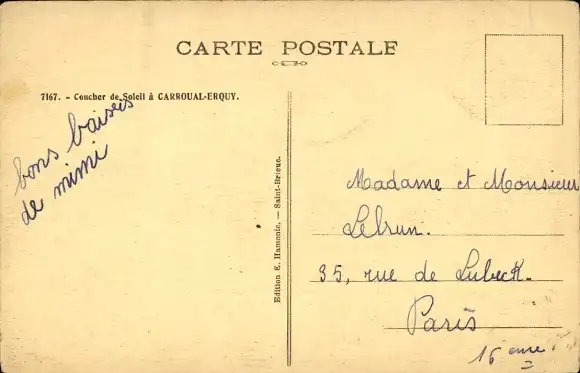 CARTE POSTALE
7167. - Coucher de Soleil à CARROUAL-ERQUY.
bons baisers
de mimi
Edition E. Hamonic. — Saint-Brieuc.
Madame et Monsieur
Lebrun.
35, rue de Lubeck.
Paris
16 eme.